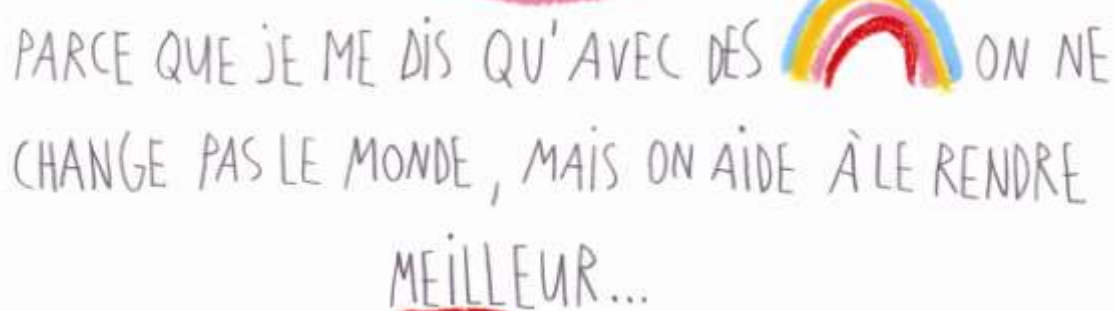 PARCE QUE JE ME DIS QU'AVEC DES ON NE
CHANGE PAS LE MONDE, MAIS ON AIDE À LE RENDRE
MEILLEUR...